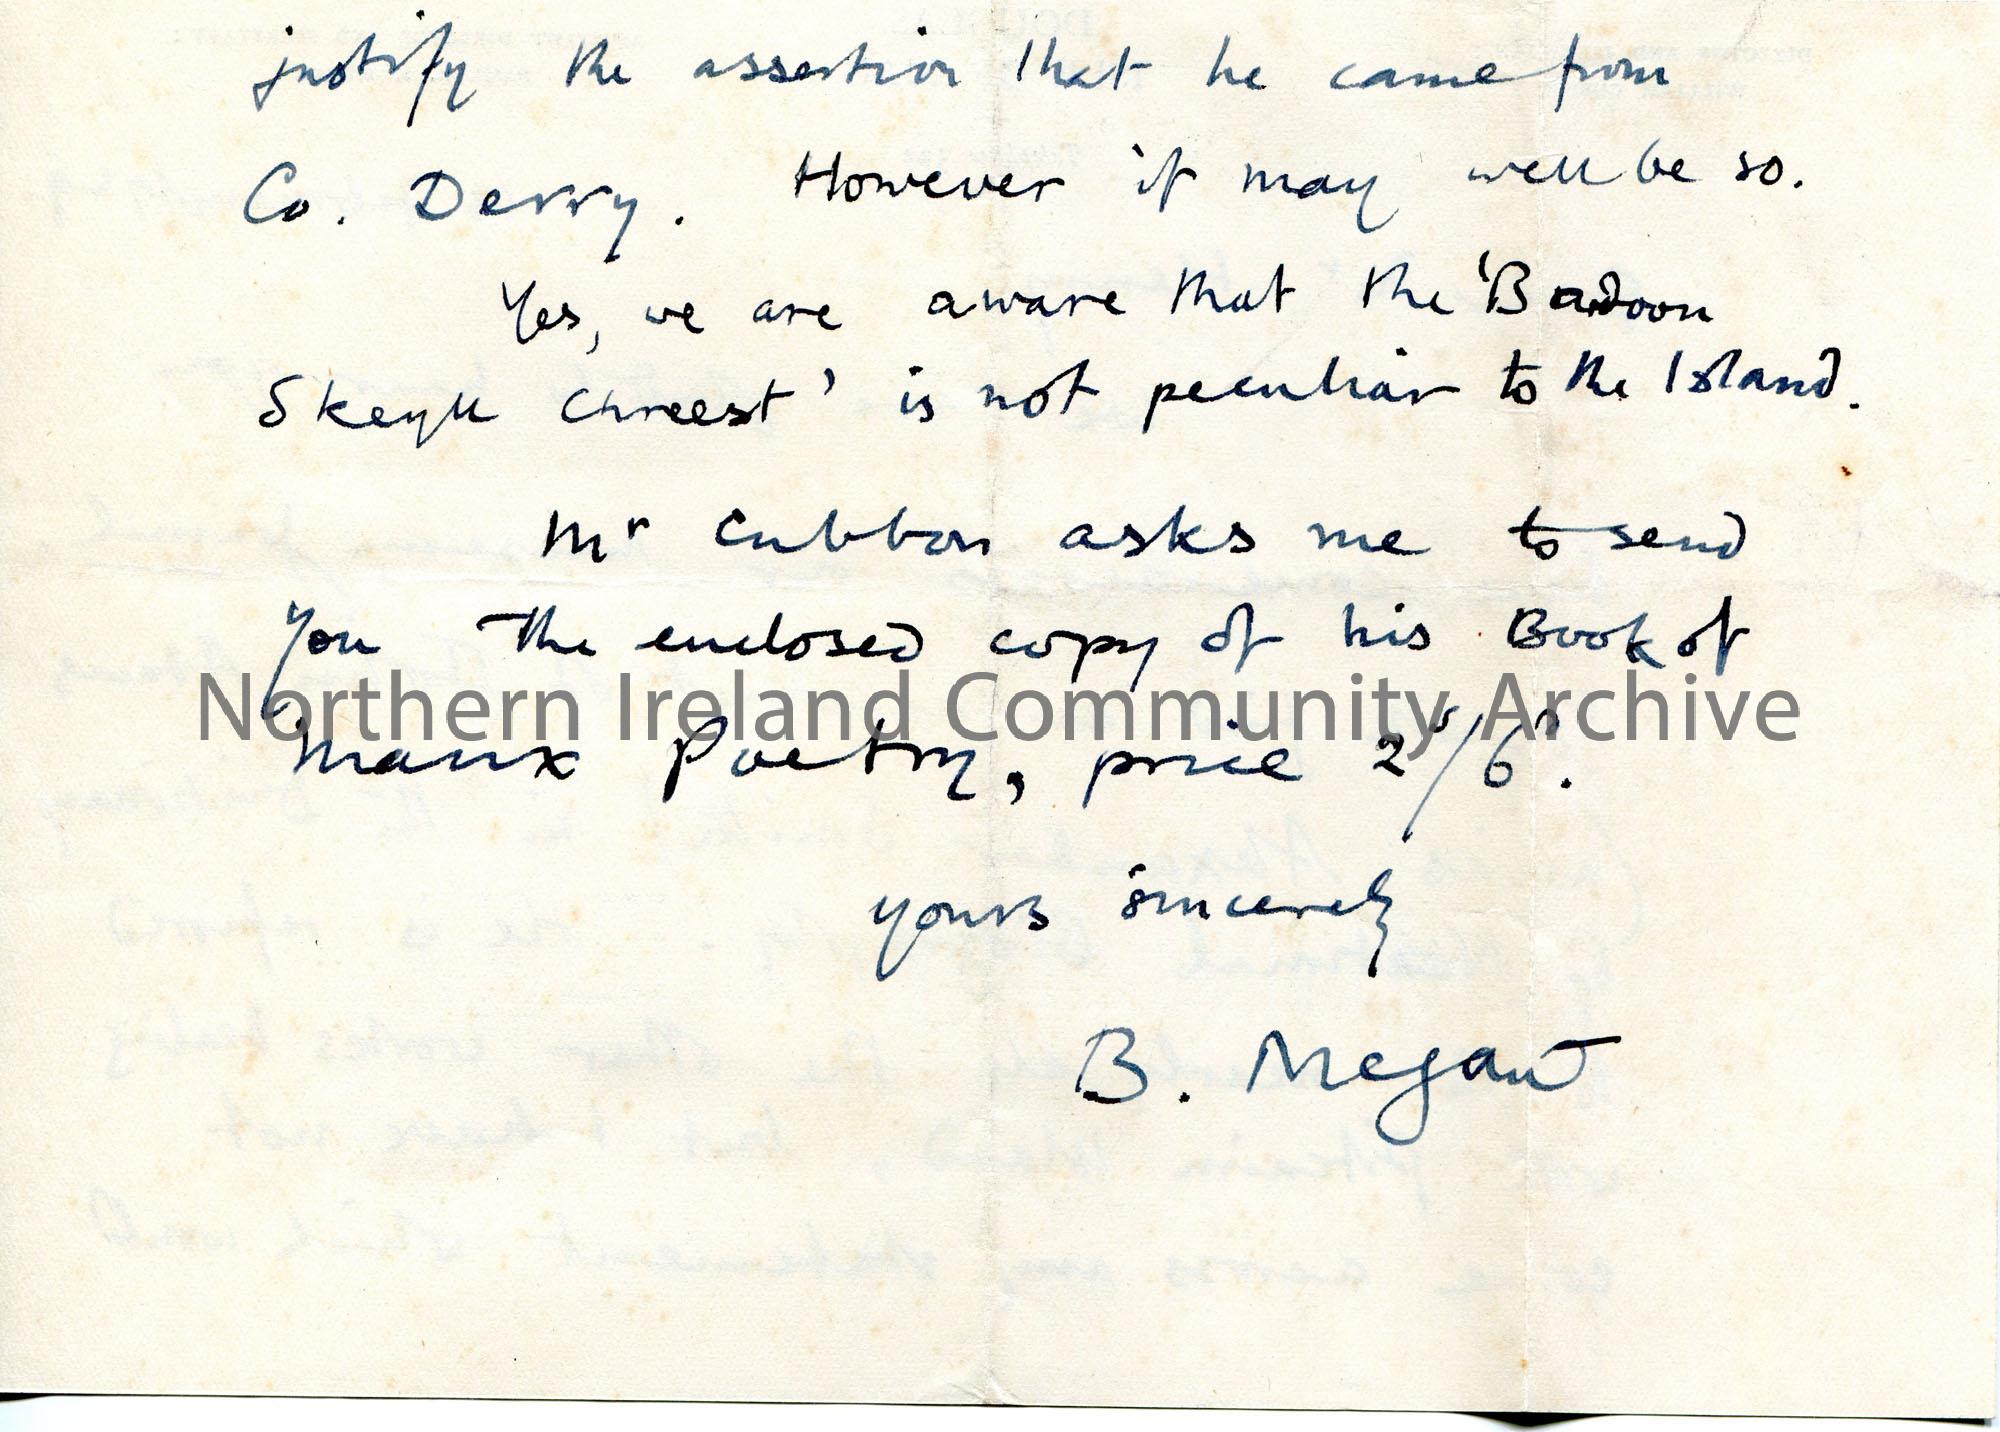 justify the assertion that he came from
Co. Derry. However it may well be so.
Yes, we are aware that the 'Badoon
Skeyll Chreest' is not peculiar to the Island.
Mr Cubbon asks me to send
you the enclosed copy of his Book of
Northern Ireland Community Archive
Manx Poetry, price 2s/6d.
yours sincerely
B. Megaw